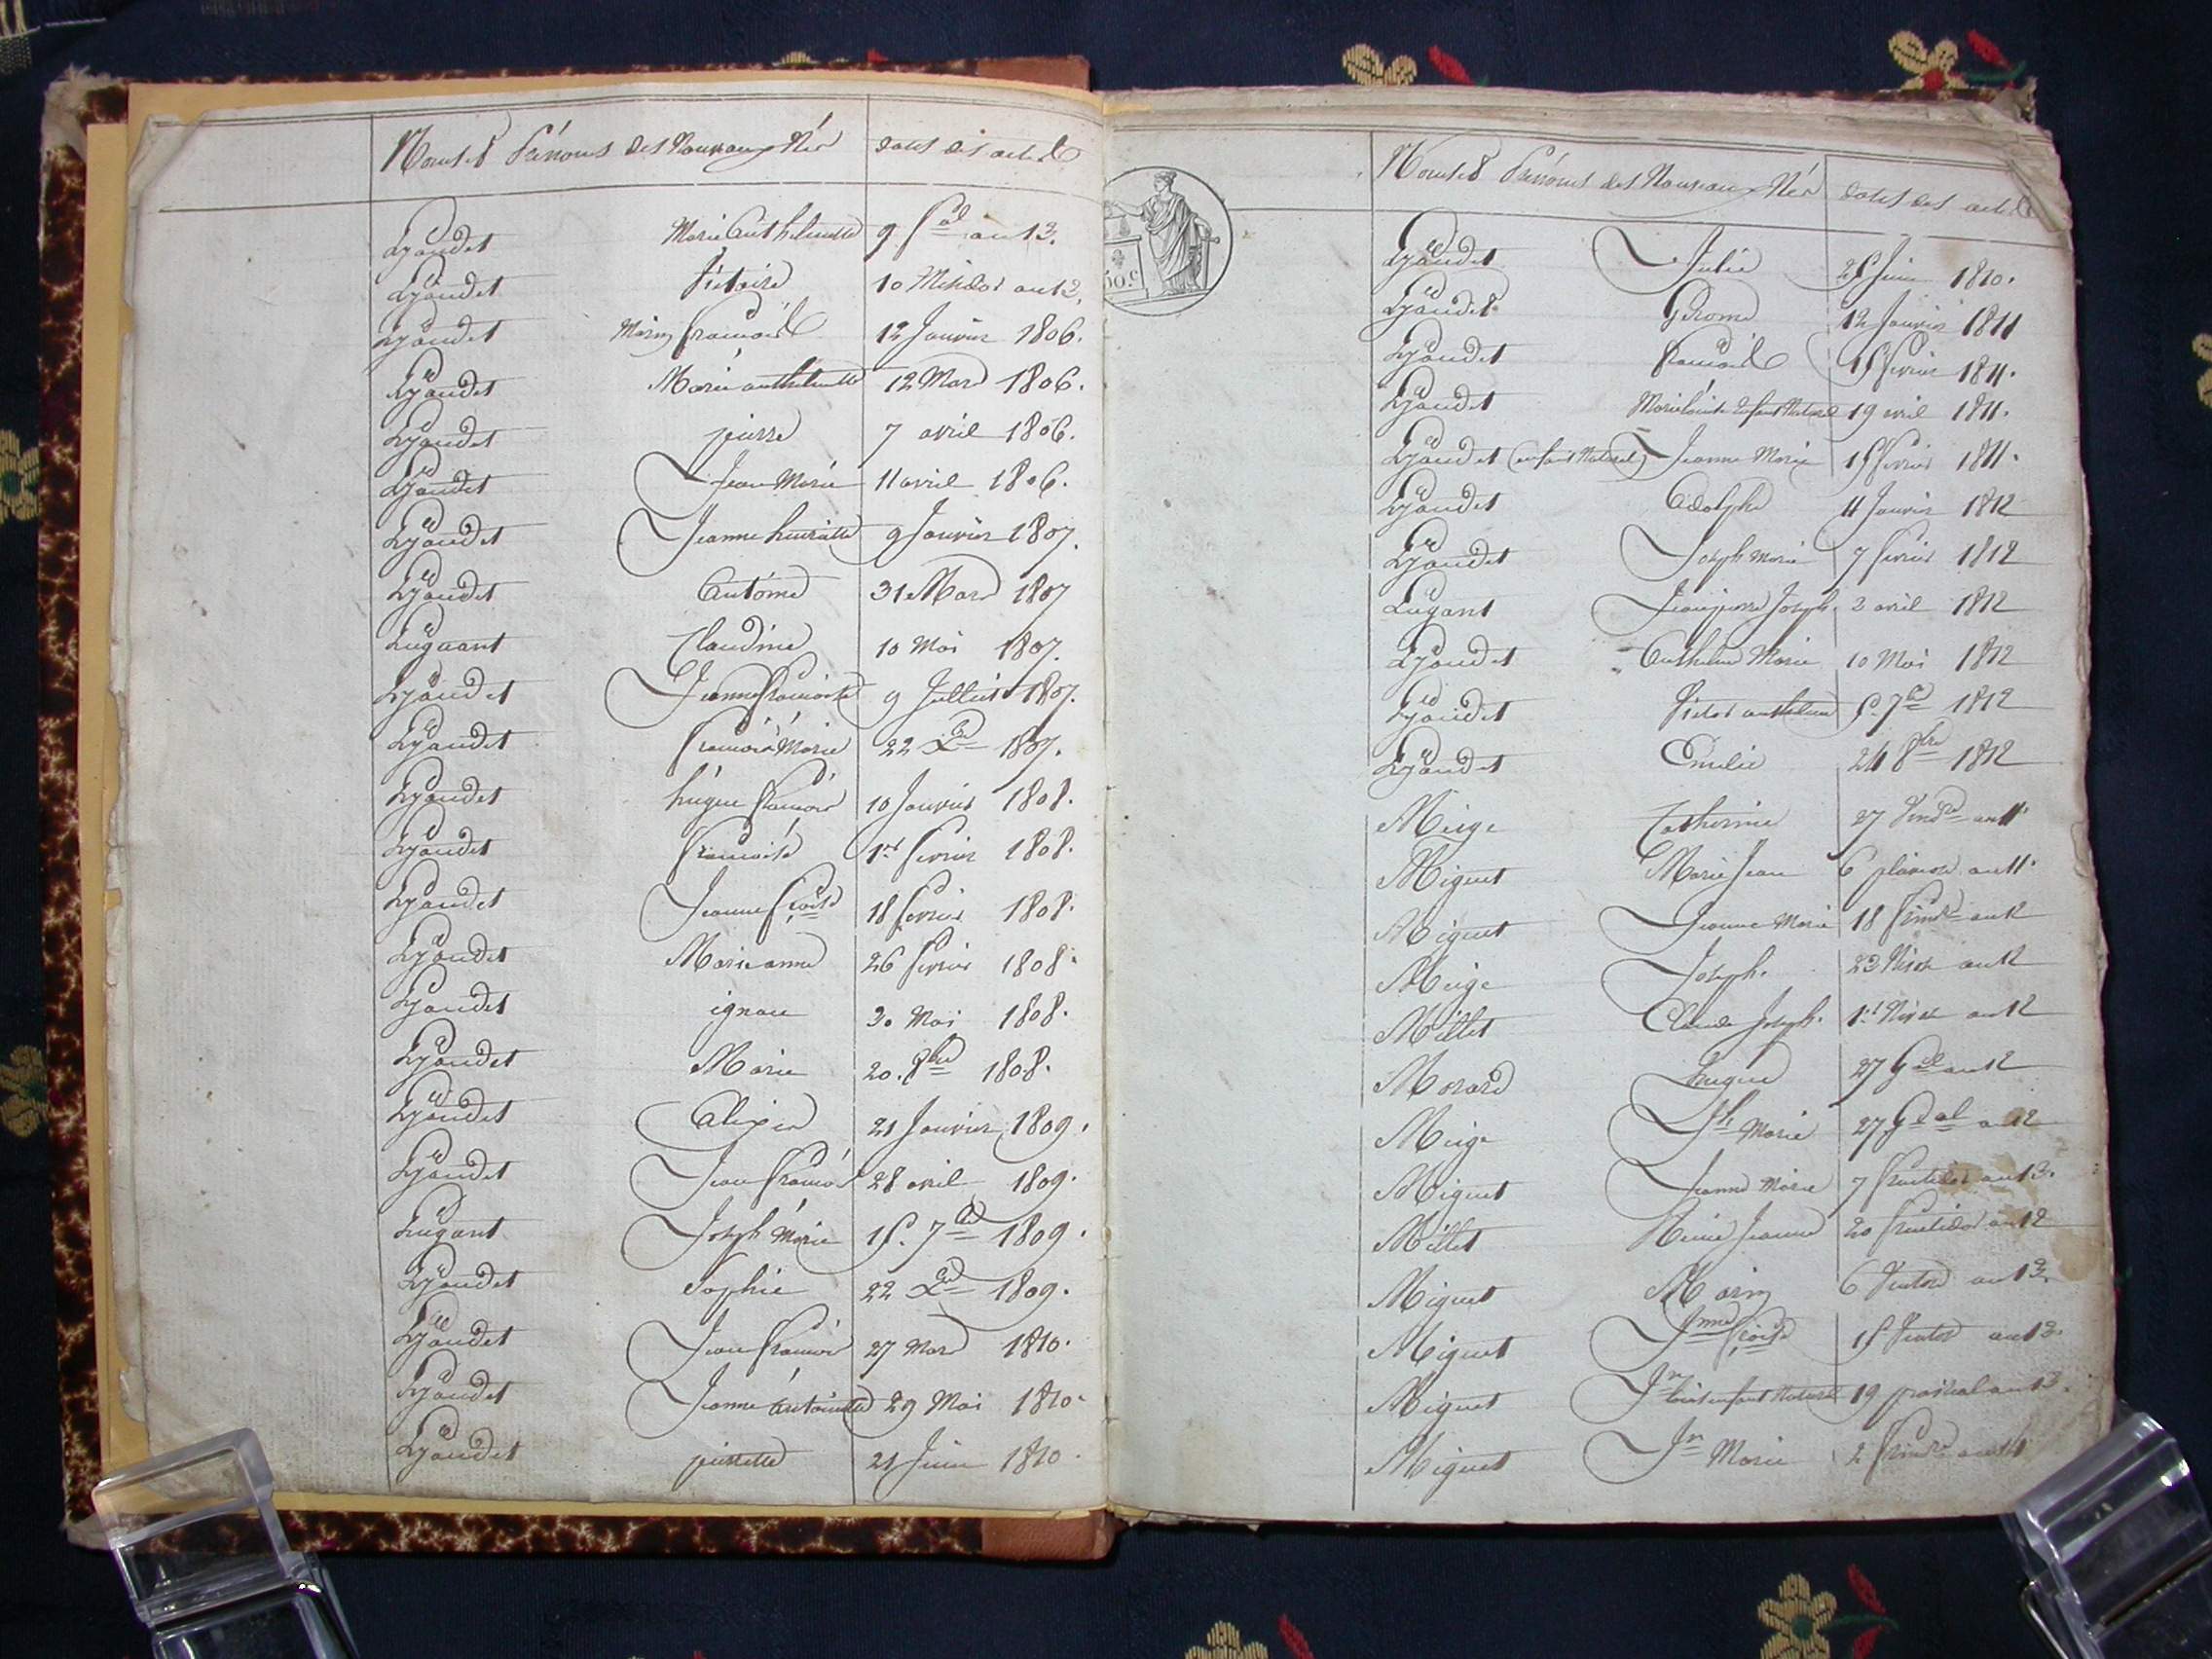 Noms et Prénoms des Nouveaux Nés dates des actes
Lyaudet Marie Anthelmette 9 an 13.
Lyaudet Victoire 10 Messidor an 13.
Lyaudet Marie françoise 12 Janvier 1806.
Lyaudet Marie anthelmette 12 Mars 1806.
Lyaudet pierre 7 avril 1806.
Lyaudet Jean Marie 11 avril 1806.
Lyaudet Jeanne henriette 9 Janvier 1807.
Lyaudet Antoine 31 Mars 1807
Lugaant Claudine 10 Mai 1807.
Lyaudet Jeanne françoise 9 Juillet 1807.
Lyaudet françois Marie 22 Xbre 1807.
Lyaudet hugue françois 10 Janvier 1808.
Lyaudet françoise 1er fevrier 1808.
Lyaudet Jeanne fçoise 18 fevrier 1808.
Lyaudet Marie anne 26 fevrier 1808.
Lyaudet ignace 30 Mai 1808.
Lyaudet Marie 20. 8bre 1808.
Lyaudet Alexis 21 Janvier 1809.
Lyaudet Jean françois 28 avril 1809.
Lugant Joseph Marie 15. 7bre 1809.
Lyaudet Sophie 22 Xbre 1809.
Lyaudet Jean françois 27 Mars 1810.
Lyaudet Jeanne Antoinette 29 Mai 1810.
Lyaudet pierrette 21 Juin 1810.
Noms et Prénoms des Nouveaux Nés dates des actes
50 c
Lyaudet Julie 25 Juin 1810.
Lyaudet Gérome 12 Janvier 1811
Lyaudet françoise 15 fevrier 1811.
Lyaudet Marie Louise Enfant Naturel 19 avril 1811.
Lyaudet (enfant Naturel) Jeanne Marie 15 fevrier 1811.
Lyaudet Adolphe 4 Janvier 1812
Lyaudet Joseph Marie 7 fevrier 1812
Lugant Jean pierre Joseph 2 avril 1812
Lyaudet Anthelme Marie 10 Mai 1812
Lyaudet Victor anthelme 5. 7bre 1812
Lyaudet Emilie 24 8bre 1812
Miege Catherine 27 Vendre an 11.
Miguet Marie Jean 6 pluviose an 11.
Miguet Jeanne Marie 18 frimre an 12
Miege Joseph. 23 Nivose an 12
Millet Claude Joseph. 1er Nivose an 12
Morard hugue 27 Gal an 12
Miege Jh Marie 27 Gal an 12
Miguet Jeanne Marie 7 fructidor an 13.
Millet Marie Jeanne 20 fructidor an 12
Miguet Marie 6 Ventose an 13.
Miguet Jnne fçoise 15 Ventose an 13.
Miguet Jn Louis enfant Naturel 19 prairial an 13.
Miguet Jn Marie 2 frimre an 14